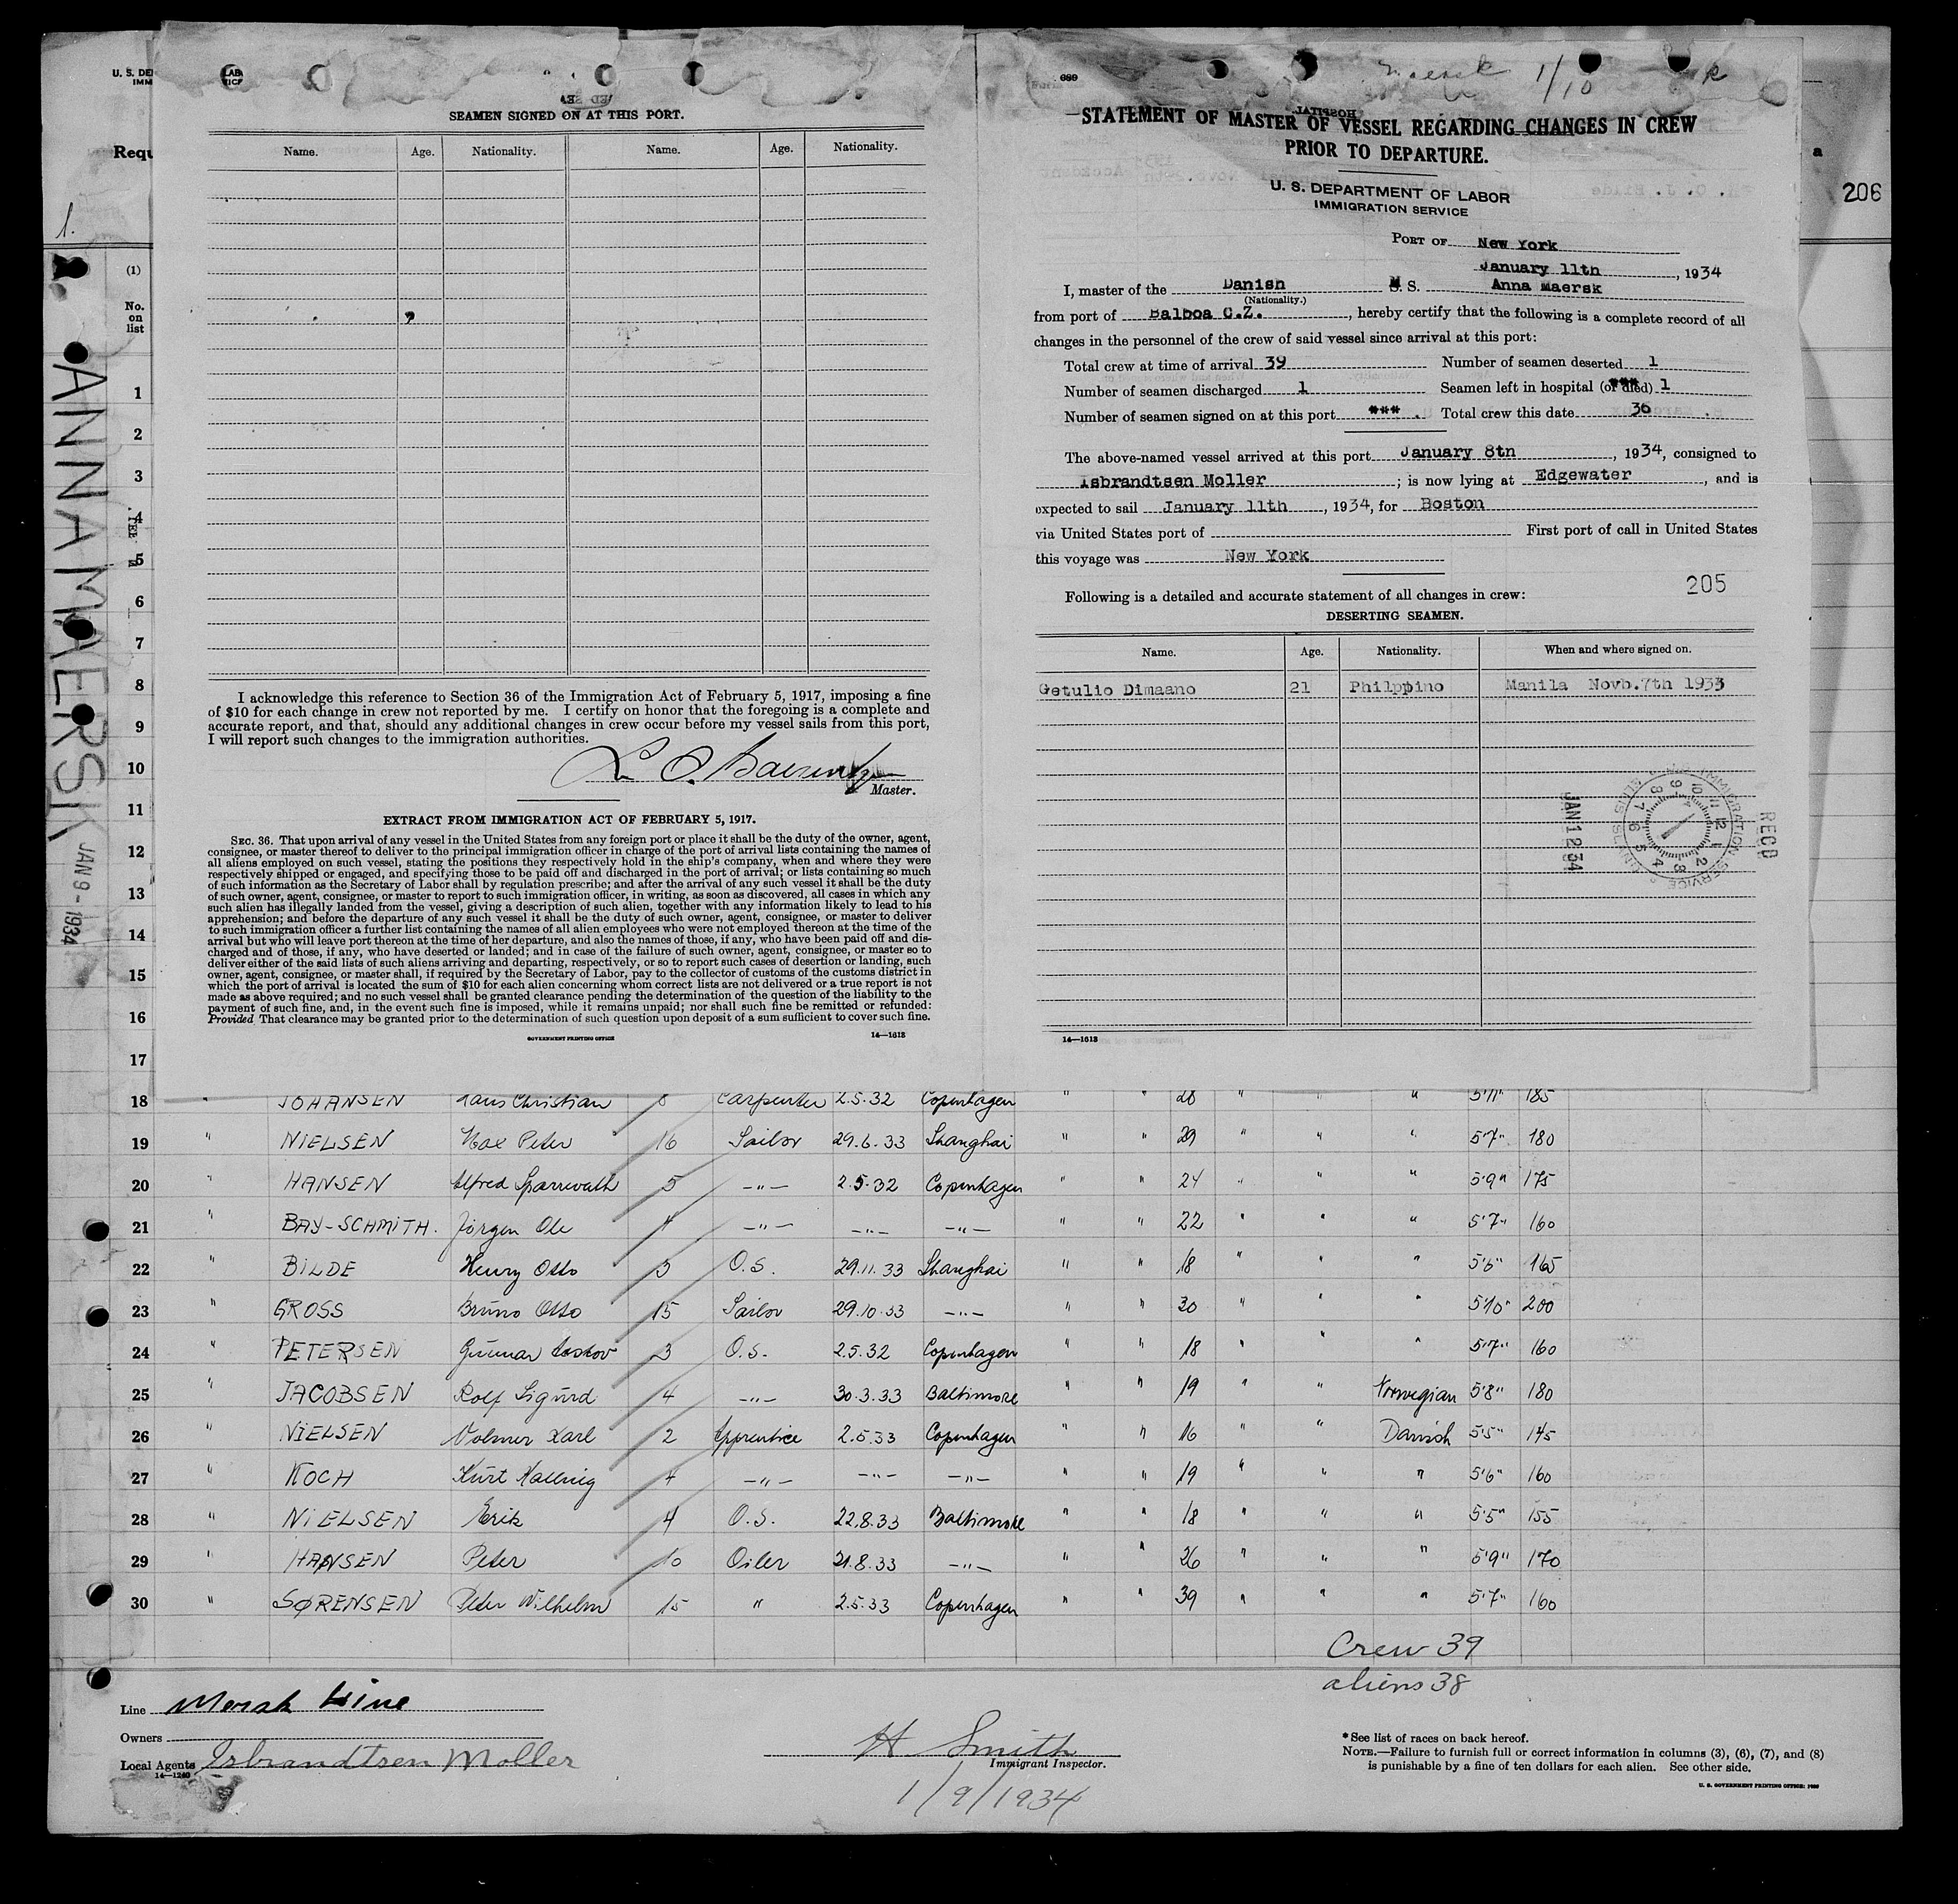 SEAMEN SIGNED ON AT THIS PORT.
Name. Age. Nationality. Name. Age. Nationality.
I acknowledge this reference to Section 36 of the Immigration Act of February 5, 1917, imposing a fine
of $10 for each change in crew not reported by me. I certify on honor that the foregoing is a complete and
accurate report, and that, should any additional changes in crew occur before my vessel sails from this port,
I will report such changes to the immigration authorities.
Master.
EXTRACT FROM IMMIGRATION ACT OF FEBRUARY 5, 1917.
SEC. 36. That upon arrival of any vessel in the United States from any foreign port or place it shall be the duty of the owner, agent,
consignee, or master thereof to deliver to the principal immigration officer in charge of the port of arrival lists containing the names of
all aliens employed on such vessel, stating the positions they respectively hold in the ship's company, when and where they were
respectively shipped or engaged, and specifying those to be paid off and discharged in the port of arrival; or lists containing so much
of such information as the Secretary of Labor shall by regulation prescribe; and after the arrival of any such vessel it shall be the duty
of such owner, agent, consignee, or master to report to such immigration officer, in writing, as soon as discovered, all cases in which any
such alien has illegally landed from the vessel, giving a description of such alien, together with any information likely to lead to his
apprehension; and before the departure of any such vessel it shall be the duty of such owner, agent, consignee, or master to deliver
to such immigration officer a further list containing the names of all alien employees who were not employed thereon at the time of the
arrival but who will leave port thereon at the time of her departure, and also the names of those, if any, who have been paid off and dis-
charged and of those, if any, who have deserted or landed; and in case of the failure of such owner, agent, consignee, or master so to
deliver either of the said lists of such aliens arriving and departing, respectively, or so to report such cases of desertion or landing, such
owner, agent, consignee, or master shall, if required by the Secretary of Labor, pay to the collector of customs of the customs district in
which the port of arrival is located the sum of $10 for each alien concerning whom correct lists are not delivered or a true report is not
made as above required; and no such vessel shall be granted clearance pending the determination of the question of the liability to the
payment of such fine, and, in the event such fine is imposed, while it remains unpaid; nor shall such fine be remitted or refunded:
Provided That clearance may be granted prior to the determination of such question upon deposit of a sum sufficient to cover such fine.
GOVERNMENT PRINTING OFFICE 14—1613
689 1/10
STATEMENT OF MASTER OF VESSEL REGARDING CHANGES IN CREW
PRIOR TO DEPARTURE.
U. S. DEPARTMENT OF LABOR
IMMIGRATION SERVICE
PORT OF New York
January 11th, 1934
I, master of the Danish M S. Anna Maersk
(Nationality.)
from port of Balboa C.Z., hereby certify that the following is a complete record of all
changes in the personnel of the crew of said vessel since arrival at this port:
Total crew at time of arrival 39 Number of seamen deserted 1
Number of seamen discharged 1 Seamen left in hospital (or died) 1
Number of seamen signed on at this port *** . Total crew this date 36
The above-named vessel arrived at this port January 8th, 1934, consigned to
Isbrandtsen Moller; is now lying at Edgewater, and is
expected to sail January 11th, 1934, for Boston
via United States port of First port of call in United States
this voyage was New York
205
Following is a detailed and accurate statement of all changes in crew:
DESERTING SEAMEN.
Name. Age. Nationality. When and where signed on.
Getulio Dimaano 21 Philppino Manila Novb.7th 1933
RECD
JAN 12 34
IMMIGRATION SERVICE ELLIS ISLAND
14—1613
206
1.
ANNA MAERSK JAN 9 - 1934
(1)
No.
on
list
1
2
3
4
5
6
7
8
9
10
11
12
13
14
15
16
17
18 " JOHANSEN Hans Christian 8 Carpenter 2.5.32 Copenhagen " " 28 " " " 5'11" 185
19 " NIELSEN Max Peter 16 Sailor 29.6.33 Shanghai " " 29 " " " 5'7" 180
20 " HANSEN Alfred 5 —"— 2.5.32 Copenhagen " " 24 " " " 5'9" 175
21 " BAY-SCHMITH. Jörgen Ole 4 —"— —"— —"— " " 22 " " " 5'7" 160
22 " BILDE Henry Otto 3 O.S. 29.11.33 Shanghai " " 18 " " " 5'6" 165
23 " GROSS Bruno Otto 15 Sailor 29.10.33 —"— " " 30 " " " 5'10" 200
24 " PETERSEN Gunnar 3 O.S. 2.5.32 Copenhagen " " 18 " " " 5'7" 160
25 " JACOBSEN Rolf Sigurd 4 —"— 30.3.33 Baltimore " " 19 " " Norwegian 5'8" 180
26 " NIELSEN Volmer Karl 2 Apprentice 2.5.33 Copenhagen " " 16 " " Danish 5'5" 145
27 " KOCH Kurt 4 —"— —"— —"— " " 19 " " " 5'6" 160
28 " NIELSEN Erik 4 O.S. 22.8.33 Baltimore " " 18 " " " 5'5" 155
29 " HANSEN Peter 10 Oiler 21.8.33 —"— " " 26 " " " 5'9" 170
30 " SØRENSEN Peter Wilhelm 15 " 2.5.33 Copenhagen " " 39 " " " 5'7" 160
Crew 39
aliens 38
Line Mersk Line
Owners
Local Agents Isbrandtsen Moller
14—1240
H Smith
Immigrant Inspector.
1/9/1934
*See list of races on back hereof.
NOTE.—Failure to furnish full or correct information in columns (3), (6), (7), and (8)
is punishable by a fine of ten dollars for each alien. See other side.
U. S. GOVERNMENT PRINTING OFFICE